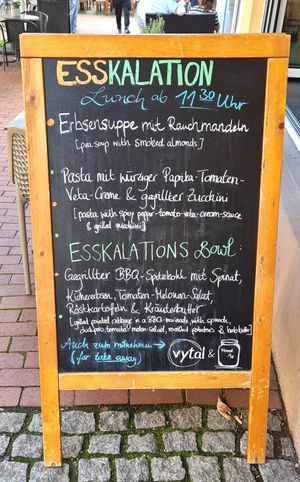 ESSKALATION
Lunch ab 11 30 Uhr
Erbsensuppe mit Rauchmandeln
[pea soup with smoked almonds]
Pasta mit würziger Paprika-Tomaten-
Veta-Creme & gegrillter Zucchini
[pasta with spicy pepper-tomato-veta-cream-sauce
& grilled zucchini]
ESSKALATIONS Bowl:
Gegrillter BBQ-Spitzkohl mit Spinat,
Kichererbsen, Tomaten-Melonen-Salat,
Röstkartoffeln & Kräuterbutter
[grilled pointed cabbage in a BBQ-marinade with spinach,
chickpeas, tomato-melon-salad, roasted potatoes & herb butter]
Auch zum mitnehmen
(for take away)
vytal &